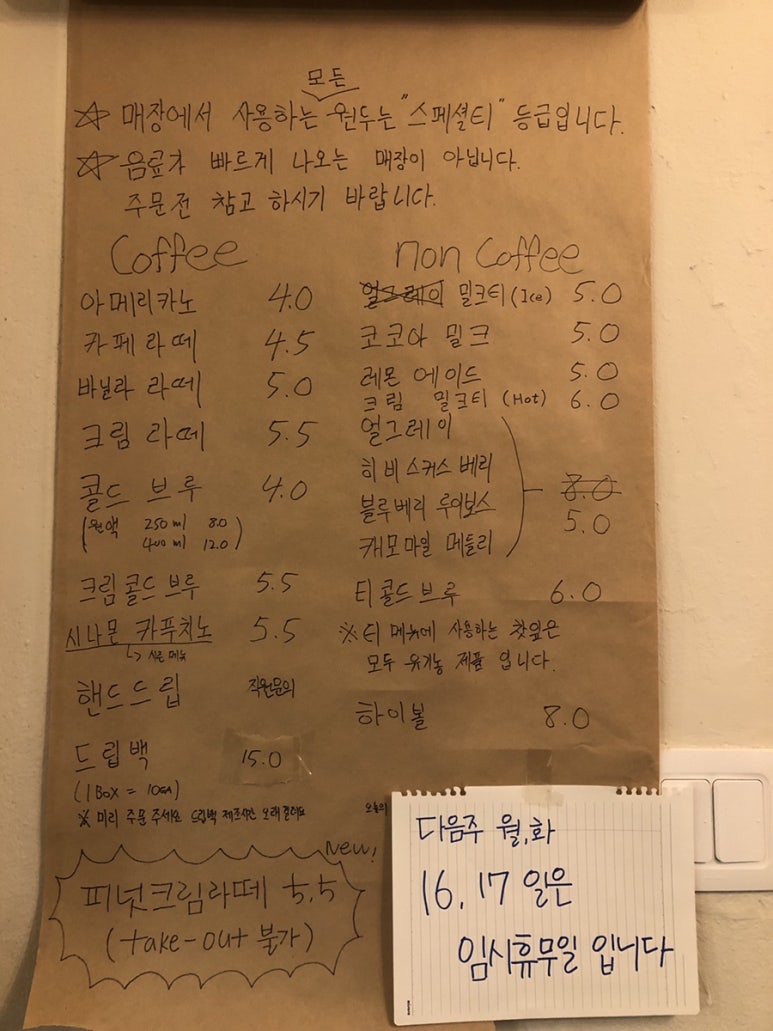 모든
☆ 매장에서 사용하는 원두는 "스페셜티" 등급입니다.
☆ 음료가 빠르게 나오는 매장이 아닙니다.
주문전 참고 하시기 바랍니다.
Coffee
아메리카노 4.0
카페 라떼 4.5
바닐라 라떼 5.0
크림 라떼 5.5
콜드 브루 4.0
(원액 250ml 8.0
400ml 12.0)
크림콜드브루 5.5
시나몬 카푸치노 5.5
↳ 시즌 메뉴
핸드드립 직원문의
드립백 15.0
(1 Box = 10EA)
※ 미리 주문 주세요 드립백 제조시간 오래 걸려요
non Coffee
얼그레이 밀크티 (Ice) 5.0
코코아 밀크 5.0
레몬 에이드 5.0
크림 밀크티 (Hot) 6.0
얼그레이
히비스커스 베리
블루베리 루이보스
캐모마일 메들리
8.0
5.0
티콜드브루 6.0
※ 티 메뉴에 사용하는 찻잎은
모두 유기농 제품 입니다.
하이볼 8.0
오늘의
New!
피넛크림라떼 5.5
(take-out 불가)
다음주 월,화
16, 17 일은
임시휴무일 입니다